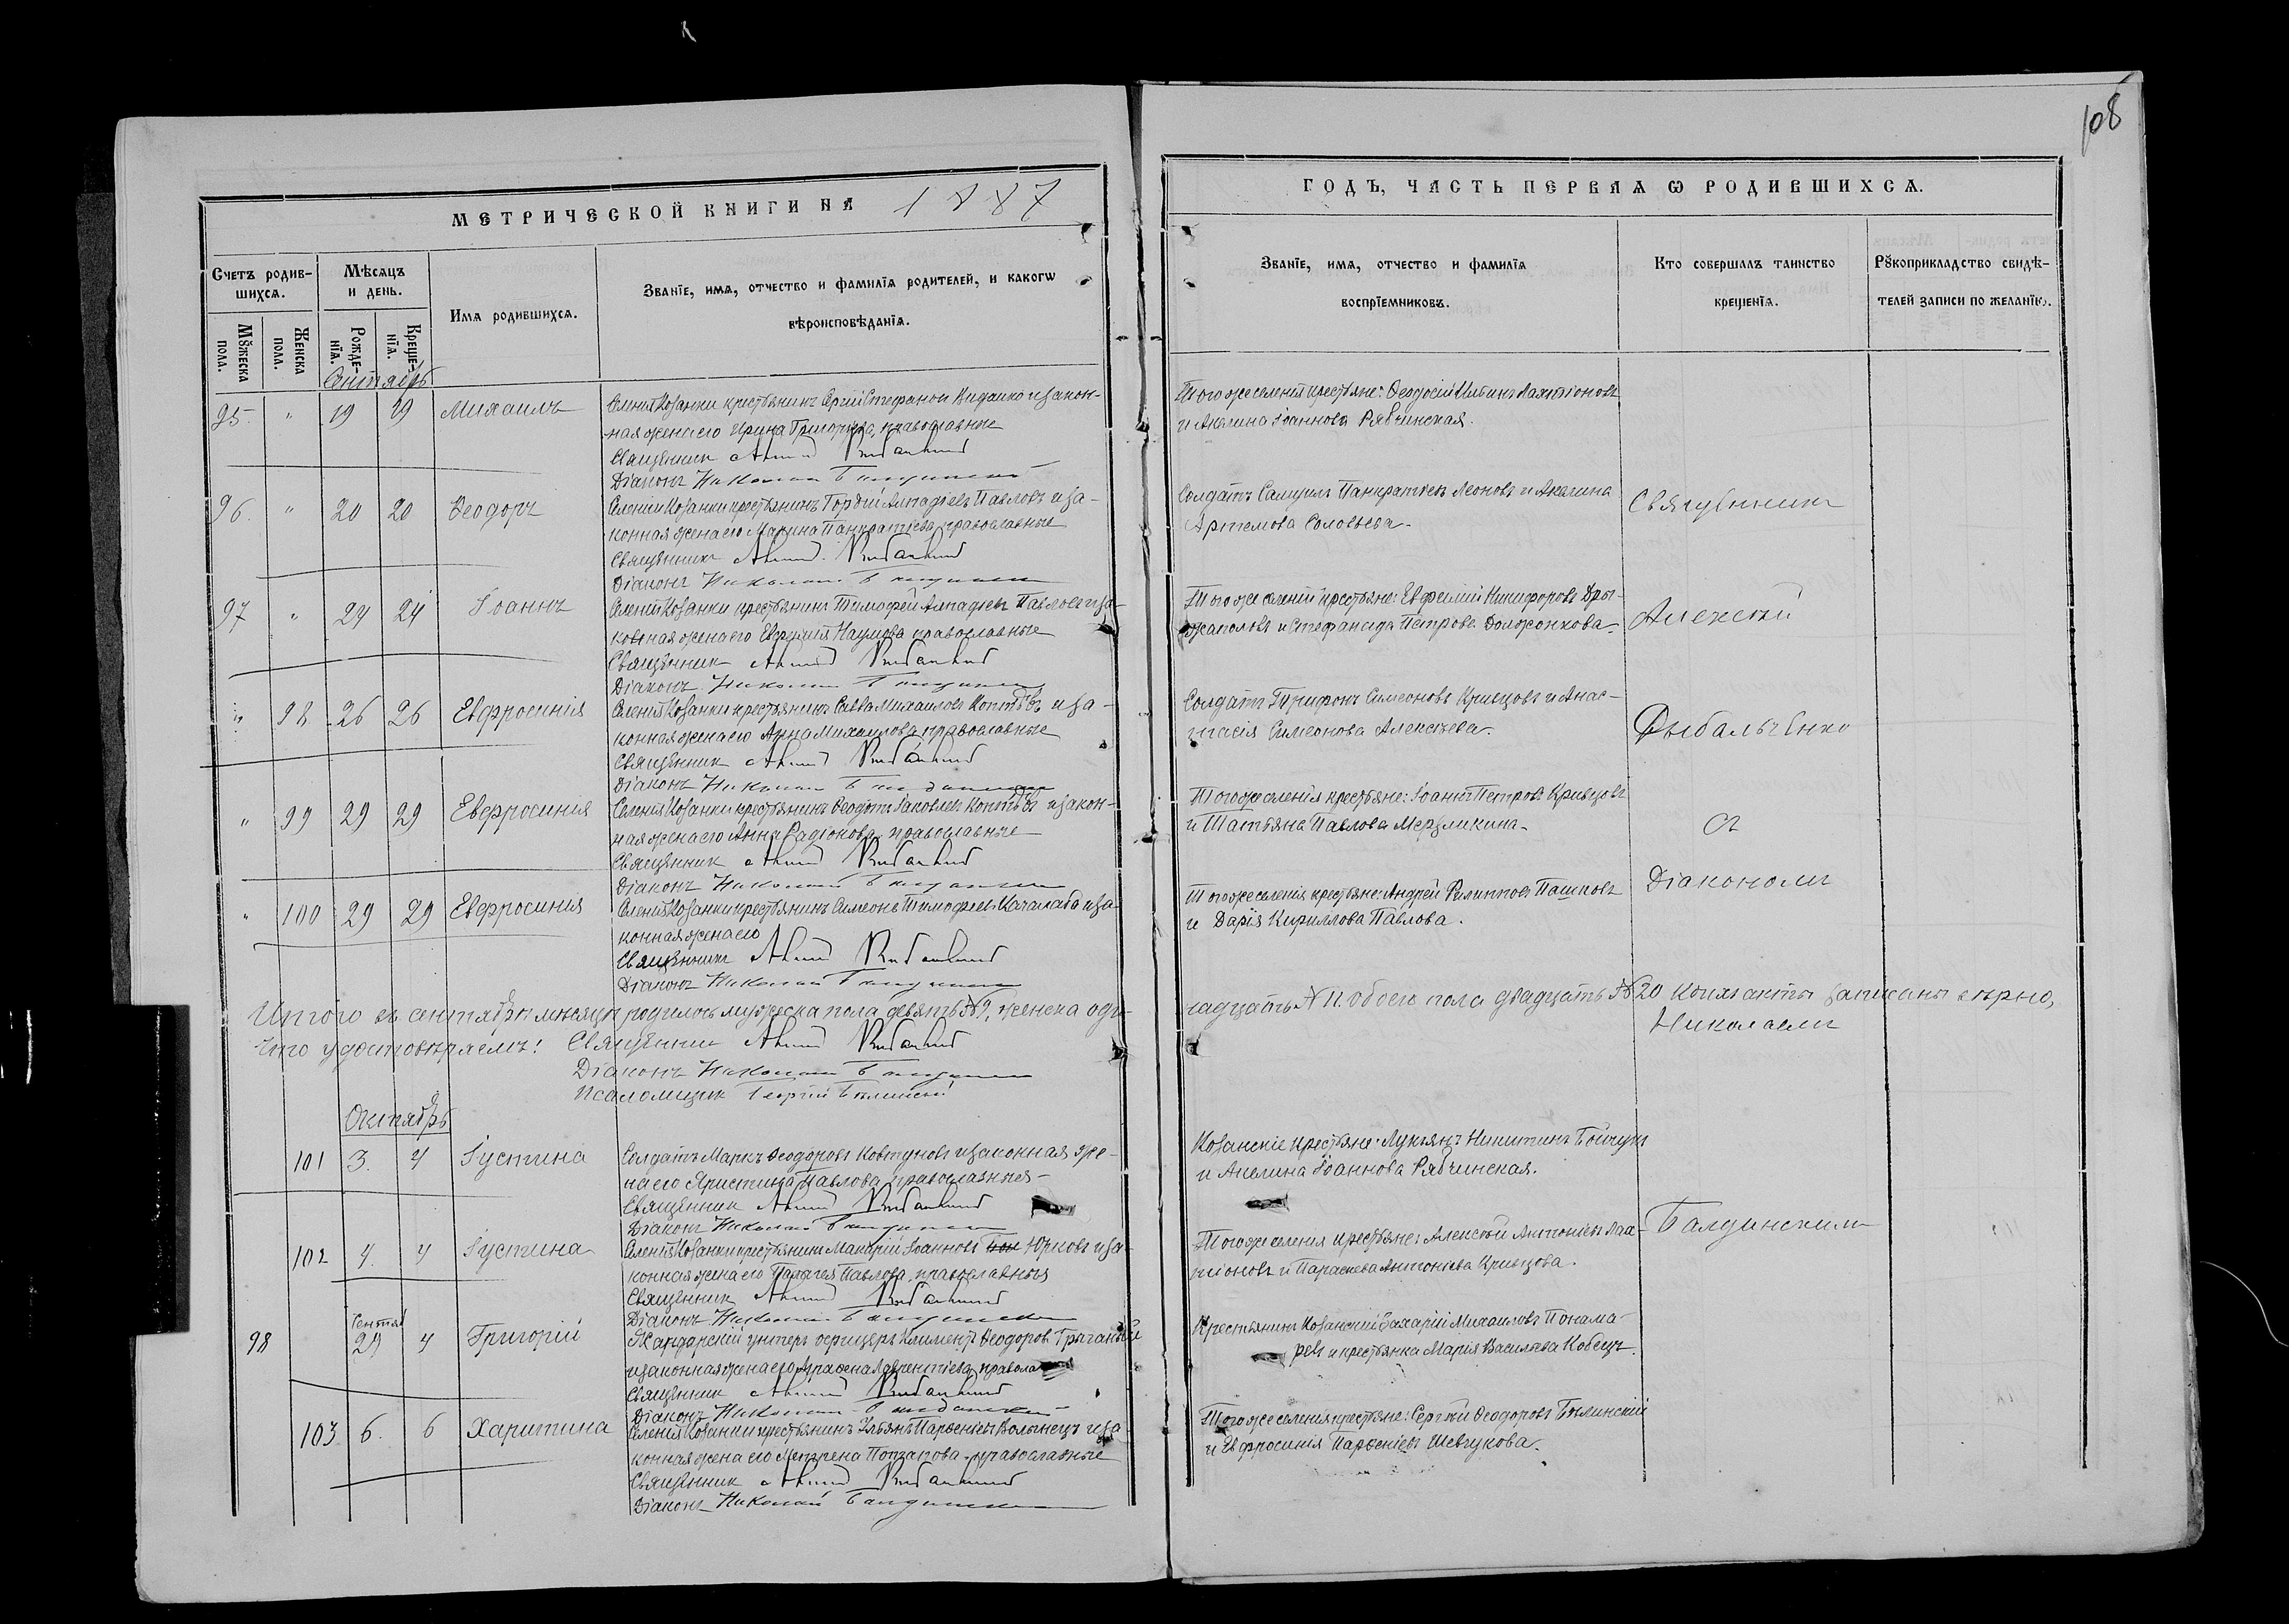 108
МЕТРИЧЕСКОЙ КНИГИ НА 1887
ГОДЪ, ЧАСТЬ ПЕРВАЯ Ѡ РОДИВШИХСЯ.
Счетъ родив-
шихся.
Мꙋжеска пола.
Женска пола.
Мѣсяцъ и день.
Рожде-
нія.
Креще-
нія.
Имя родившихся.
Званіе, имя, отчество и фамилія родителей, и какогѡ
вѣроисповѣданія.
Званіе, имя, отчество и фамилія
воспріемниковъ.
Кто совершалъ таинство
крещенія.
Рꙋкоприкладство свидѣ-
телей записи по желанію.
Сентябрь
95 " 19 19 Михаилъ
Селенія Козанки крестьянинъ Сергій Стефановъ изакон-
ная жена его Ирина Григорьева, православные
Священник
Діаконъ Николай
Тогоже селенія крестьяне: Ѳеодосій Ильинъ Лактіоновъ
и Акилина Іоаннова Рябчинская.
96. " 20 20 Ѳеодоръ
Селенія Козанки крестьянинъ Гордій Аркадіевъ Павловъ иза-
конная жена его Марина Панкратіева, православные
Священникъ
Діаконъ Николай
Солдатъ Самуилъ Панкратіевъ Леоновъ и Акилина
Артемова Соловьева.
Священникъ
97 " 24 24 Іоаннъ
Селенія Козанки крестьянинъ Тимофей Аркадіевъ Павловъ иза-
конная жена его Евфимія Наумова православные
Священник
Діаконъ Николай
Тогоже селенія крестьяне: Евфимій Никифоровъ Дры-
жаполовъ и Стефанида Петрова Должонкова.
Алексій
" 98 26 26 Евфросинія
Селенія Козанки крестьянинъ Савва Михаиловъ Коптѣвъ иза-
конная жена его Анна Михаилова, православные
Священник
Діаконъ Николай
Солдатъ Трифонъ Симеоновъ Кривцовъ и Анас-
тасія Симеонова Алексѣева.
Рыбальченко
" 99 29 29 Евфросинія
Селенія Козанки крестьянинъ Ѳеодотъ Іаковлевъ Коптѣвъ изакон-
ная жена его Анна Радіонова, православные
Священник
Діаконъ Николай
Тогоже селенія крестьяне: Іоаннъ Петровъ Кривцовъ
и Татьяна Павлова Мерзликина.
съ
" 100 29 29 Евфросинія
Селенія Козанки крестьянинъ Симеонъ Тимофеевъ Качалаба иза-
конная жена его
Священникъ
Діаконъ Николай
Тогоже селенія крестьяне: Андрей Филипповъ Пашковъ
и Дарія Кириллова Павлова.
Діакономъ
Итого въ сентябрѣ мѣсяцѣ родилось мужеска пола девять №9, женска оди-
надцать №11. Обоего пола двадцать №20 коихъ акты записаны вѣрно,
Что удостовѣряемъ! Священник
Николаемъ
Діаконъ Николай
Псаломщик Георгій
Октябрь
101 3. 4 Іустина
Солдатъ Маркъ Ѳеодоровъ Ковтуновъ изаконная же-
на его Христина Павлова, православныя
Священник
Діаконъ Николай
Козанскіе крестьяне: Лукьянъ Никитинъ Бойчукъ
и Акилина Іоаннова Рябчинская.
102 4. 4 Іустина
Селенія Козанки крестьянинъ Макарій Іоанновъ Юрковъ иза-
конная жена его Палагея Павлова, православныя
Священник
Діаконъ Николай
Тогоже селенія крестьяне: Алексѣй Антоніевъ Лак-
тіоновъ и Параскева Антоніева Кривцова.
Балдинскимъ
98 Сентяб 29 4 Григорій
Жандарскій унтеръ офицеръ Климентъ Ѳеодоровъ
изаконная жена его Агрaфена Лаврентіева, правосла
Священник
Діаконъ Николай
Крестьянинъ Козанскій Захарій Михаиловъ Понама-
ревъ и крестьянка Марія Василіева Кобецъ.
103 6. 6 Харитина
Селенія Козанки крестьянинъ Ульянъ Парѳеніевъ Волынецъ иза-
конная жена его Матрена Потапова, православные
Священник
Діаконъ Николай
Тогоже селенія крестьяне: Сергѣй Ѳеодоровъ Бѣлинскій
и Евфросинія Парѳеніевъ Шевчукова.